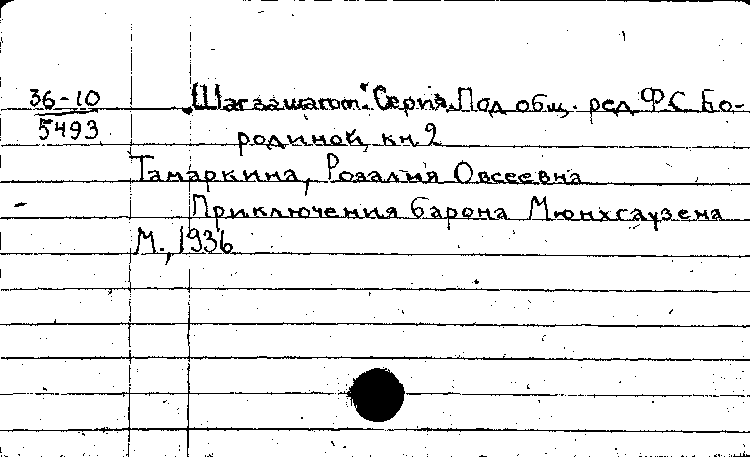 36-10
5493
„Шаг за шагом“. Серия. Под общ. ред Ф С Бо-
родиной, кн 2
Тамаркина, Розалия Овсеевна
Приключения барона Мюнхгаузена
М., 1936